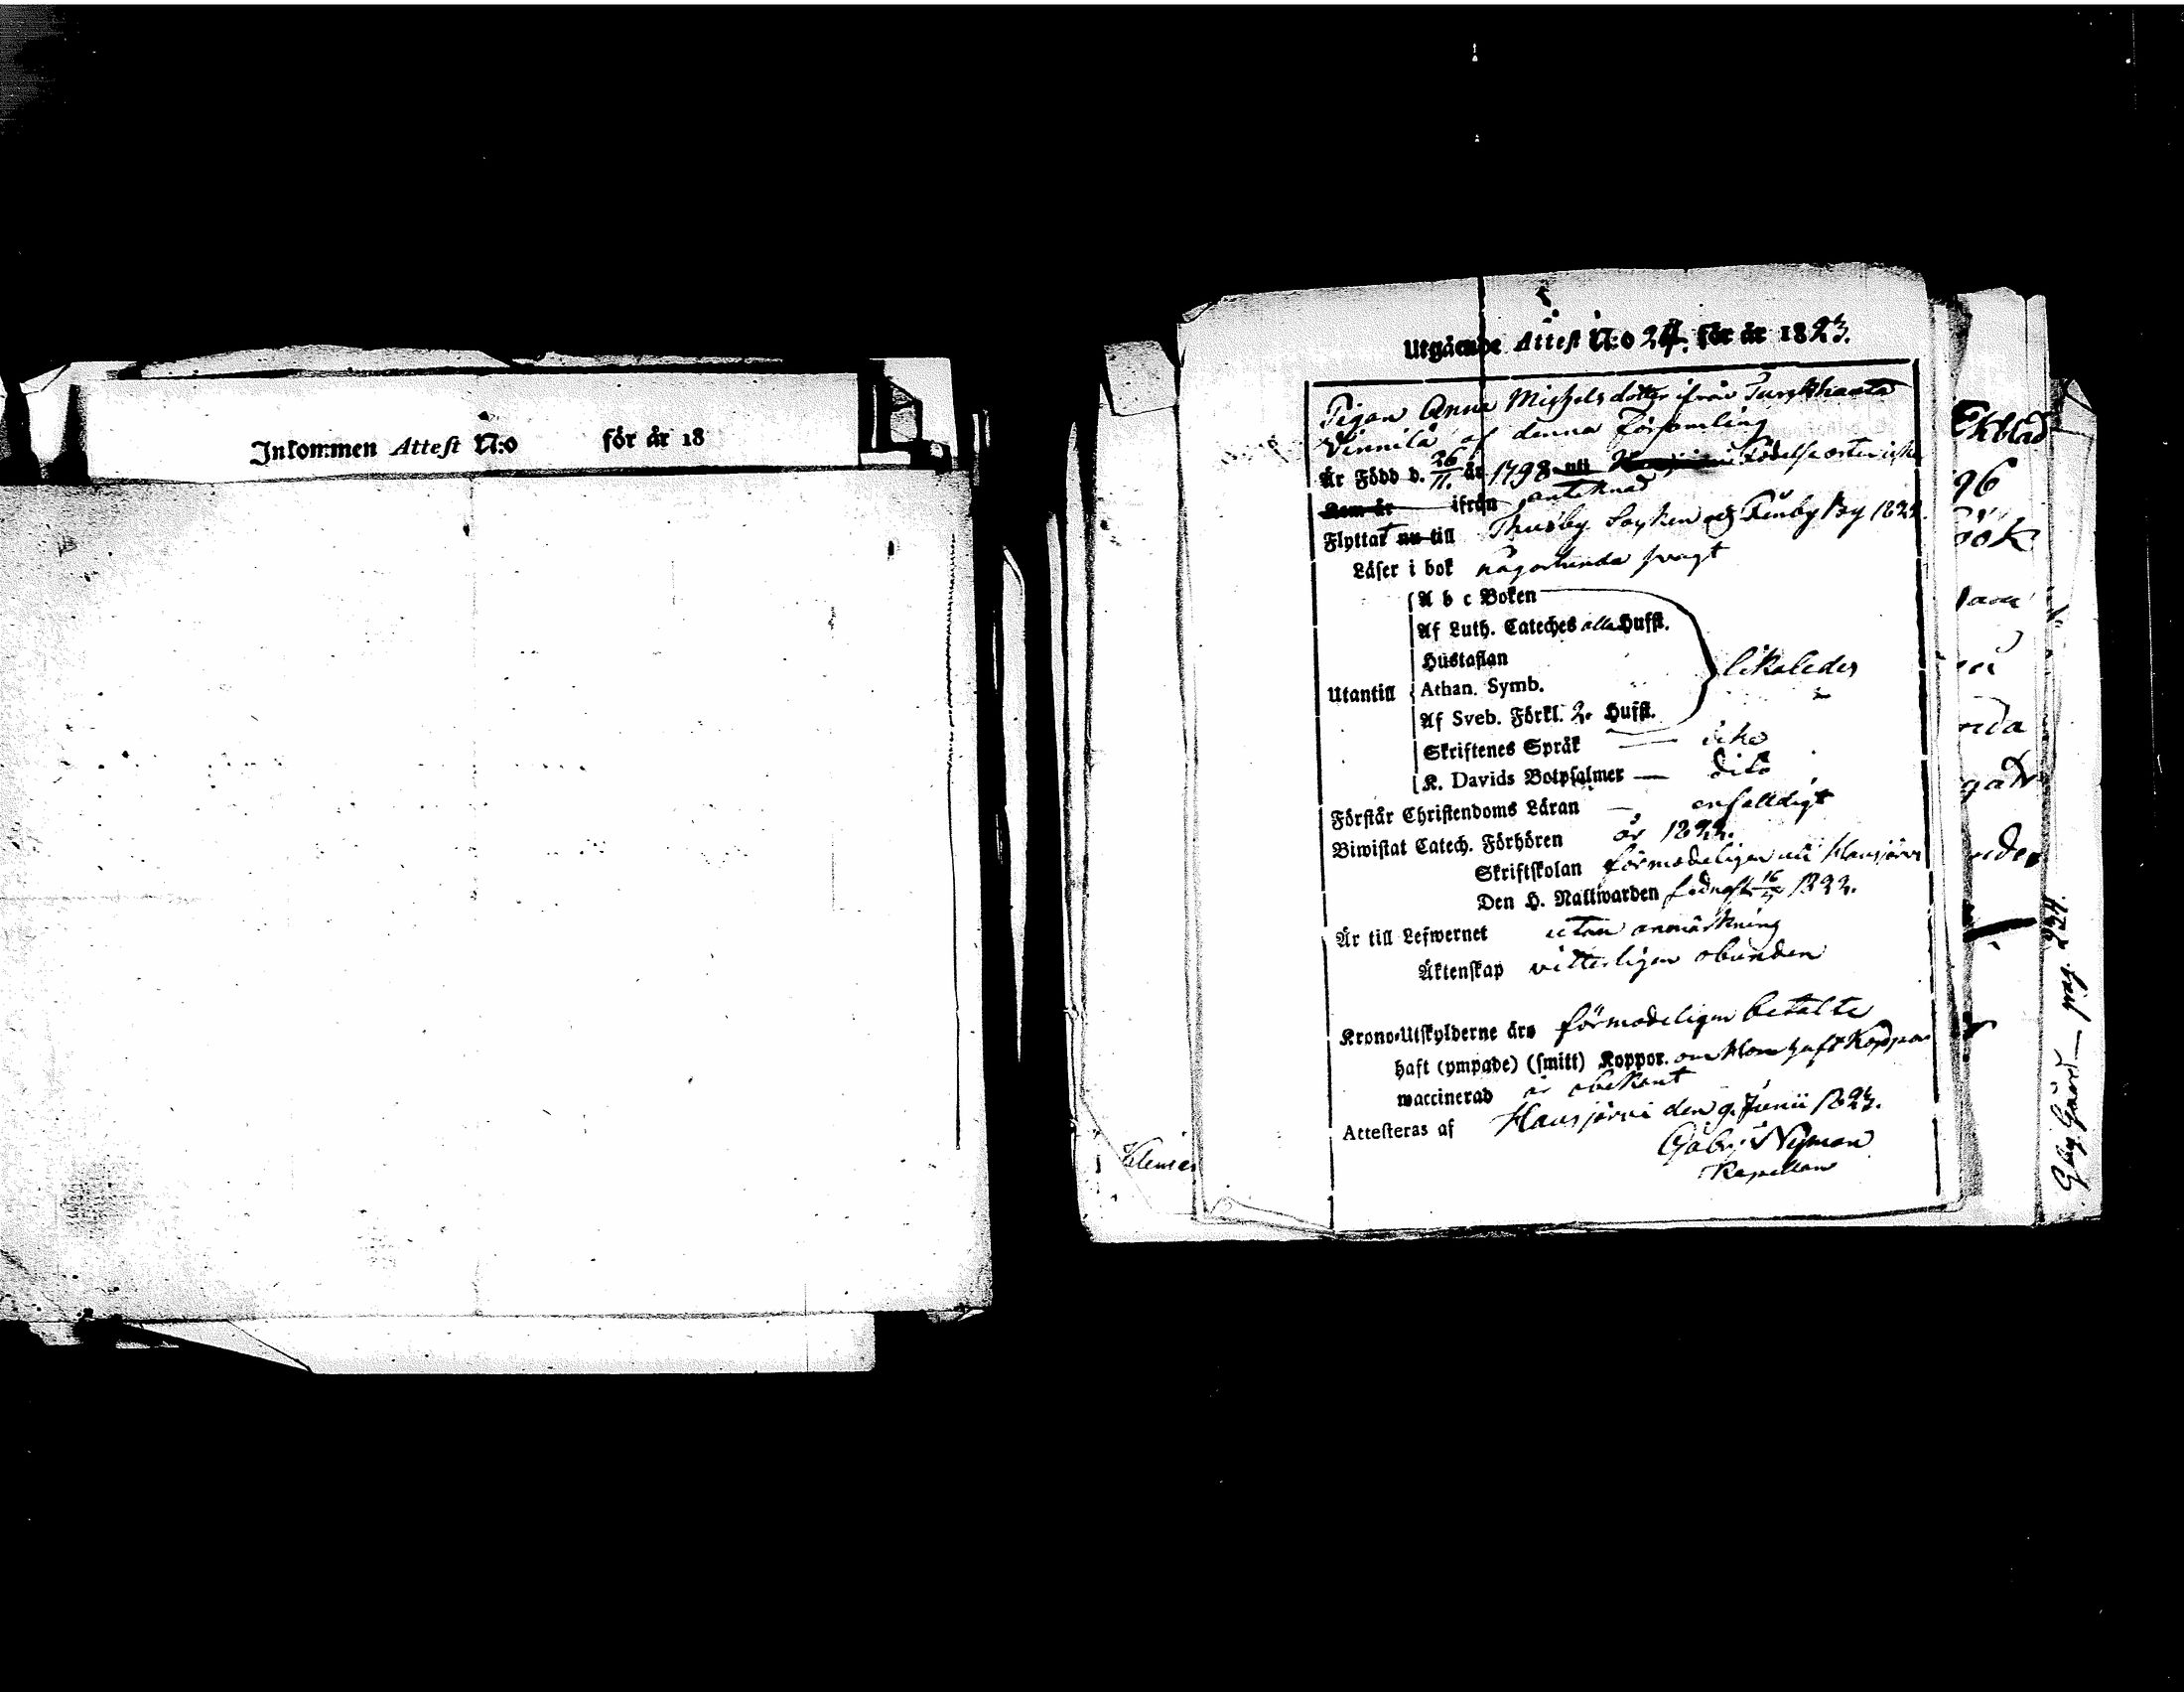 Inkommen Attest N:o för år 18
Utgående Attest N:o 24. för år 1823.
Pigan Anna Michels dotter ifrån Turkhauta
Vinnilä af denna Församling
Är Född d. 26/11. år 1798 uti födelse orten icke
Kom år ifrån antecknad
Flyttat nu till Thusby Socken och Finby By 1822.
Läser i bok någorlunda svagt
A b c Boken
Af Luth. Cateches alla Hufst.
Hustaflan
likaledes
Utantill Athan. Symb.
Af Sveb. Förkl. 2. Hufst.
Skriftenes Språk — icke
K. Davids Botpsalmer — dito
Förstår Christendoms Läran — enfaldigt
Biwistat Catech. Förhören år 1822.
Skriftskolan förmodeligen uti Hausjärvi
Den H. Nattwarden 1822.
Är till Lefwernet utan anmärkning
Äktenskap vitterligen obunden
Krono-Utskylderne äro förmodeligen betalte
haft (ympade) (smitt) Koppor. om Hon haft Koppor
waccinerad är obekant
Attesteras af Hausjärvi den 9. Junii 1823.
Gabr. Nyman
Kapellan
Ekblad
96
pag. 224.